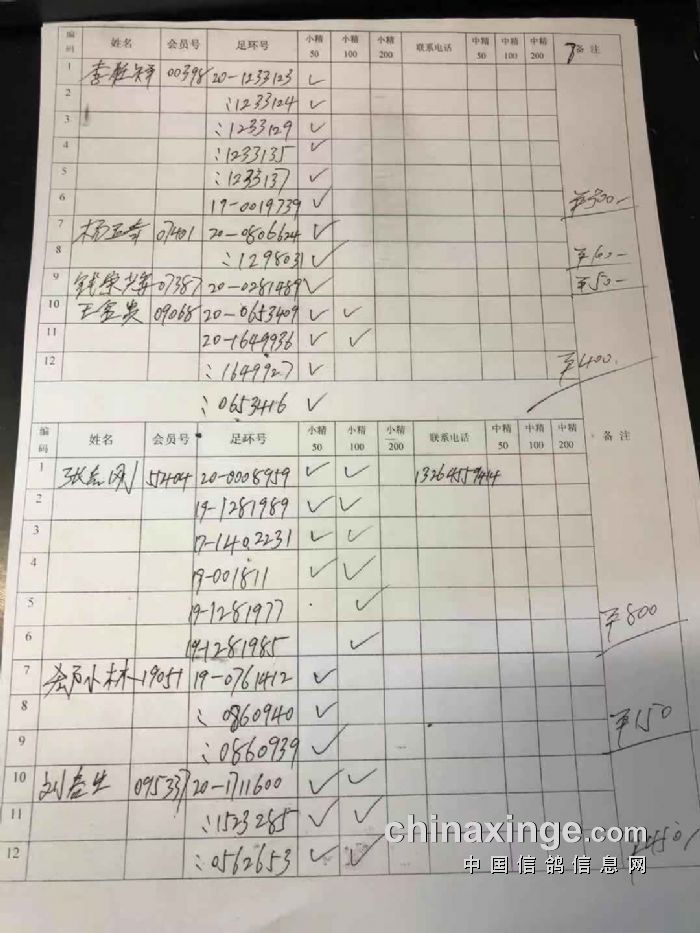 编码 姓名 会员号 足环号 小精50 小精100 小精200 联系电话 中精50 中精100 中精200 备注
1 李 00398 20-1233123 ✓
2 :1233124 ✓
3 :1233129 ✓
4 :1233135 ✓
5 :1233137 ✓
6 19-0019739 ✓ ¥300-
7 杨 07401 20-0806624 ✓
8 :129803 ✓ ¥100-
9 钱荣 07387 20-0281489 ✓ ¥50-
10 王金贵 09068 20-0653409 ✓ ✓
11 20-1649936 ✓ ✓
12 :1649927 ✓ ¥400.
:0653416 ✓
编码 姓名 会员号 足环号 小精50 小精100 小精200 联系电话 中精50 中精100 中精200 备注
1 张志刚 55404 20-0008959 ✓ ✓ 13264559414
2 19-1281989 ✓ ✓
3 17-1402231 ✓ ✓
4 19-001811 ✓ ✓
5 19-1281977 ✓
6 19-1281985 ✓ ¥800
7 小林 19051 19-0761412 ✓
8 :0860940 ✓
9 :0860939 ✓ ¥150
10 刘春生 095337 20-1711600 ✓ ✓
11 :1523285 ✓ ✓
12 :0562653 ✓ ✓ ¥450
chinaxinge.com
中国信鸽信息网